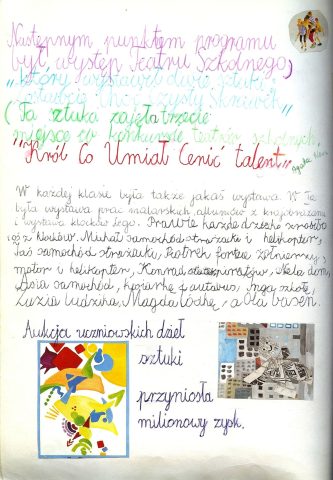 Następnym punktem programu
był występ Teatru Szkolnego,
który wystawił dwie sztuki
chcę czysty skrawek"
(Ta sztuka zajęła trzecie
miejsce co konkursie teatrów szkolnych.
"Król Co Umiał Cenić talent"
W każdej klasie była także jakaś wystawa. W Ia
była wystawa prac malarskich, albumów z krajobrazami
i wystawa klocków Lego. Prawie każde dziecko zrobiło
coś z klocków. Michał samochód strażacki i helikopter,
Jaś samochód strażacki, Piotrek fortecę żołnierzy,
motor i helikopter, Konrad Nela dom,
Zosia samochód, Inga szkołę,
Zuzia ludzika, Magda łódkę, a Ola basen.
Aukcja uczniowskich dzieł
sztuki
przyniosła
milionowy zysk.